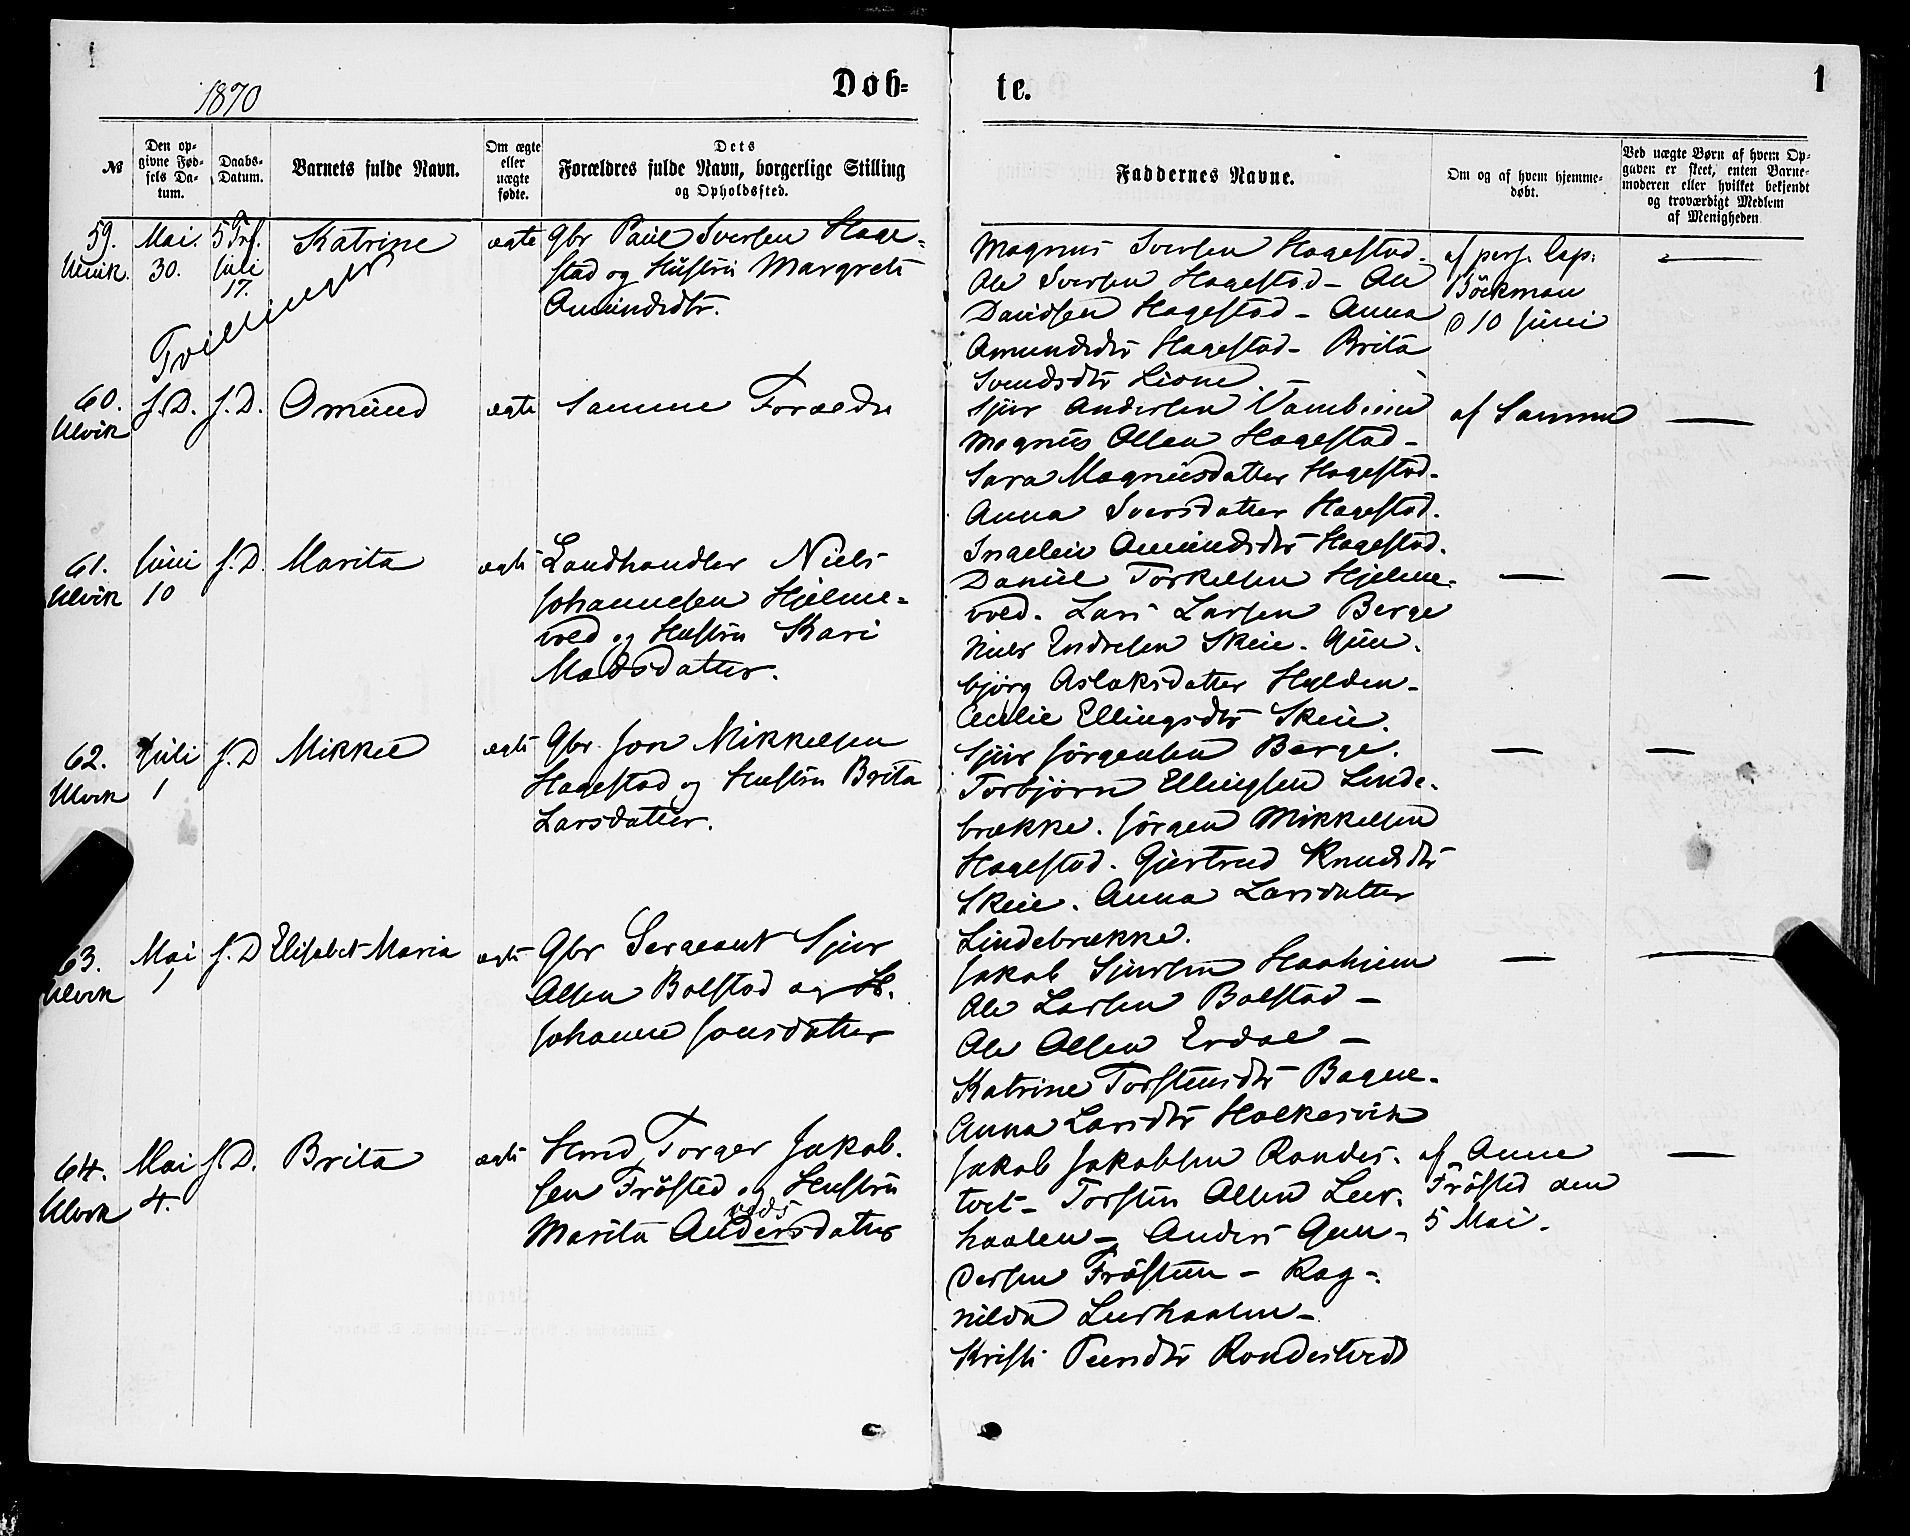 1
1870
Døb-
te.
1
№
Den op-
givne Fød-
sels Da-
tum.
Daabs-
Datum.
Barnets fulde Navn.
Om ægte
eller
uægte
fødte.
Dets
Forældres fulde Navn, borgerlige Stilling
og Opholdssted.
Faddernes Navne.
Om og af hvem hjemme-
døbt.
Ved uægte Børn af hvem Op-
gaven er skeet, enten Barne-
moderen eller hvilket bekjendt
og troværdigt Medlem
af Menigheden
59.
Ulvik.
Mai.
30.
5 Trf.
Juli
17.
Katrine
Tvillinger
ægte
Gbr Paul Iversen Hage-
stad og Hustru Margrete
Amundsdtr.
Magnus Iversen Hagestad.
Ole Iversen Hagestad - Ole
Davidsen Hagestad - Anna
Amundsdtr Hagestad - Brita
Svendsdtr Lione
af pers. Cap.
Böckman
d 10 Juni
60.
Ulvik
s. D.
s. D.
Omund
ægte
Samme Forældre
Sjur Andersen Vambheim
Magnus Olsen Hagestad -
Sara Magnusdatter Hagestad -
Anna Iversdatter Hagestad.
Ingeleiv Amundsdtr Hagestad.
af Samme
61.
Ulvik
Juni
10
s. D.
Marita
ægte
Landhandler Niels
Johannesen Hjelme-
vold og Hustru Kari
Madsdatter.
Daniel Torkelsen Hjelme-
vold. Lars Larsen Berge
Niels Endresen Skeie. Gun-
björg Aslaksdatter Hylden -
Cecilie Ellingsdtr Skeie.
62.
Ulvik
Juli
1
s. D
Mikkel
ægte
Gbr. Jon Mikkelsen
Hagestad og Hustru Brita
Larsdatter.
Sjur Jörgensen Berge.
Torbjörn Ellingsen Linde-
brække. Jörgen Mikkelsen
Hagestad. Gjertrud Knudsdtr
Skeie. Anna Larsdatter
Lindebrække.
63.
Ulvik
Mai
1
s. D
Elisabet Maria
ægte
Gbr Sergeant Sjur
Olsen Bolstad og H.
Johanne Jonsdatter
Jakob Sjursen Haaheim
Ole Larsen Bolstad -
Ole Olsen Erdal -
Katrine Torstensdtr Bagne.
Anna Larsdtr Holkesvik
64.
Ulvik
Mai
4.
s. D.
Brita
ægte
Hmd Torger Jakob-
sen Frösted og Hustru
Marita Andersdatter
Jakob Jakobsen Rondes-
tvet - Torsten Olsen Leir-
haalen - Anders Gun-
dersen Frösten - Rag-
nilda Leirhaalen -
Kristi Peersdtr Rondestvedt
af Anne
Frösted den
5 Mai -